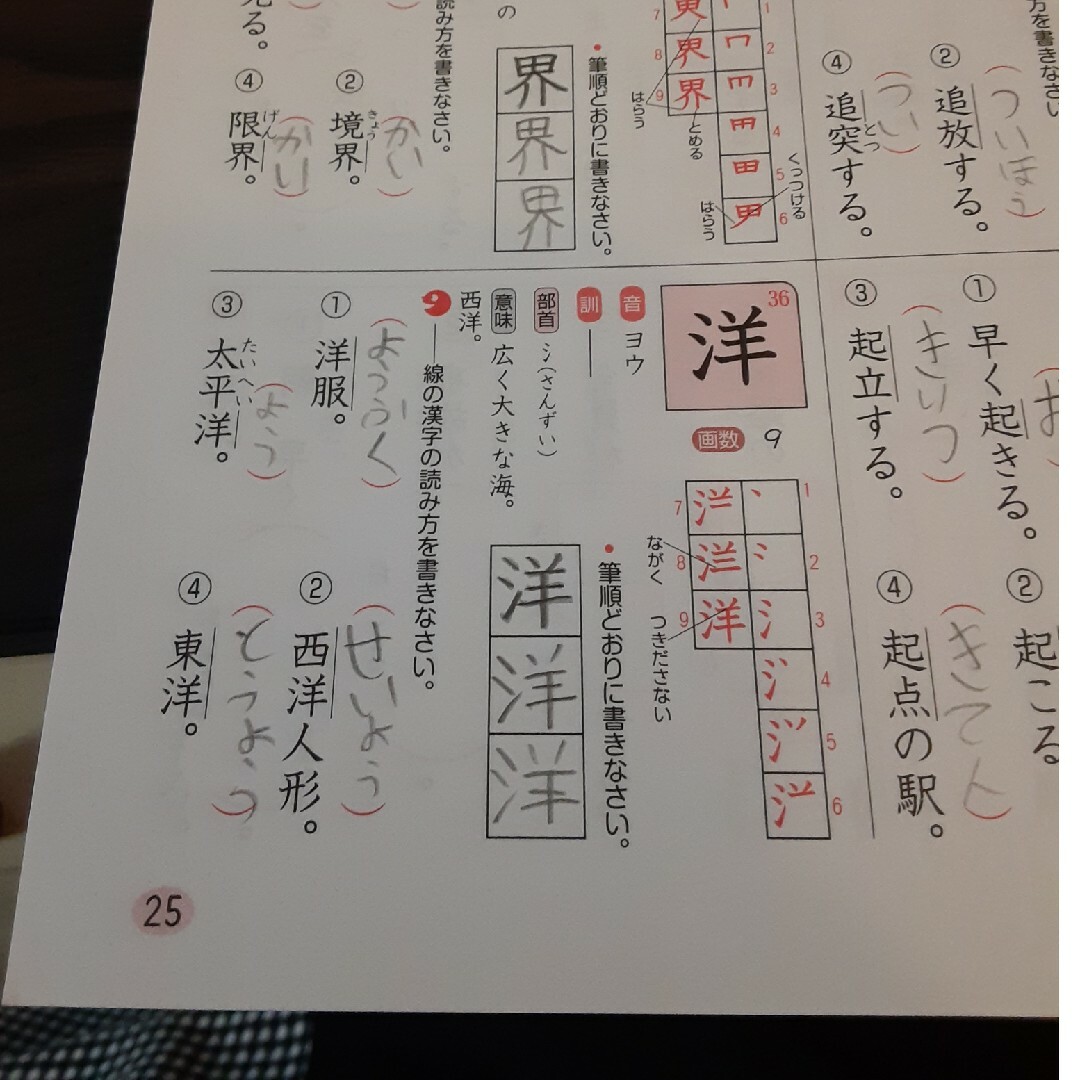 ②
追放する。
(ついほう)
④
追突する。
とつ
(つい)
①
早く起きる。
(お
②
起こる
③
起立する。
(きりつ)
④
起点の駅。
(きてん)
1
2
3
4
5
6
7
8
9
はらう
とめる
くっつける
はらう
●筆順どおりに書きなさい。
界
界
界
の
読み方を書きなさい。
②
境界。
きょう
(かい)
④
限界。
げん
(かい)
36
洋
画数 9
1
2
3
4
5
6
7
8
9
ながく
つきださない
●筆順どおりに書きなさい。
洋
洋
洋
音 ヨウ
訓 ―
部首 氵(さんずい)
意味 広く大きな海。
西洋。
――線の漢字の読み方を書きなさい。
①
洋服。
(ようふく)
②
西洋人形。
(せいよう)
③
太平洋。
たいへい
(よう)
④
東洋。
(とうよう)
25